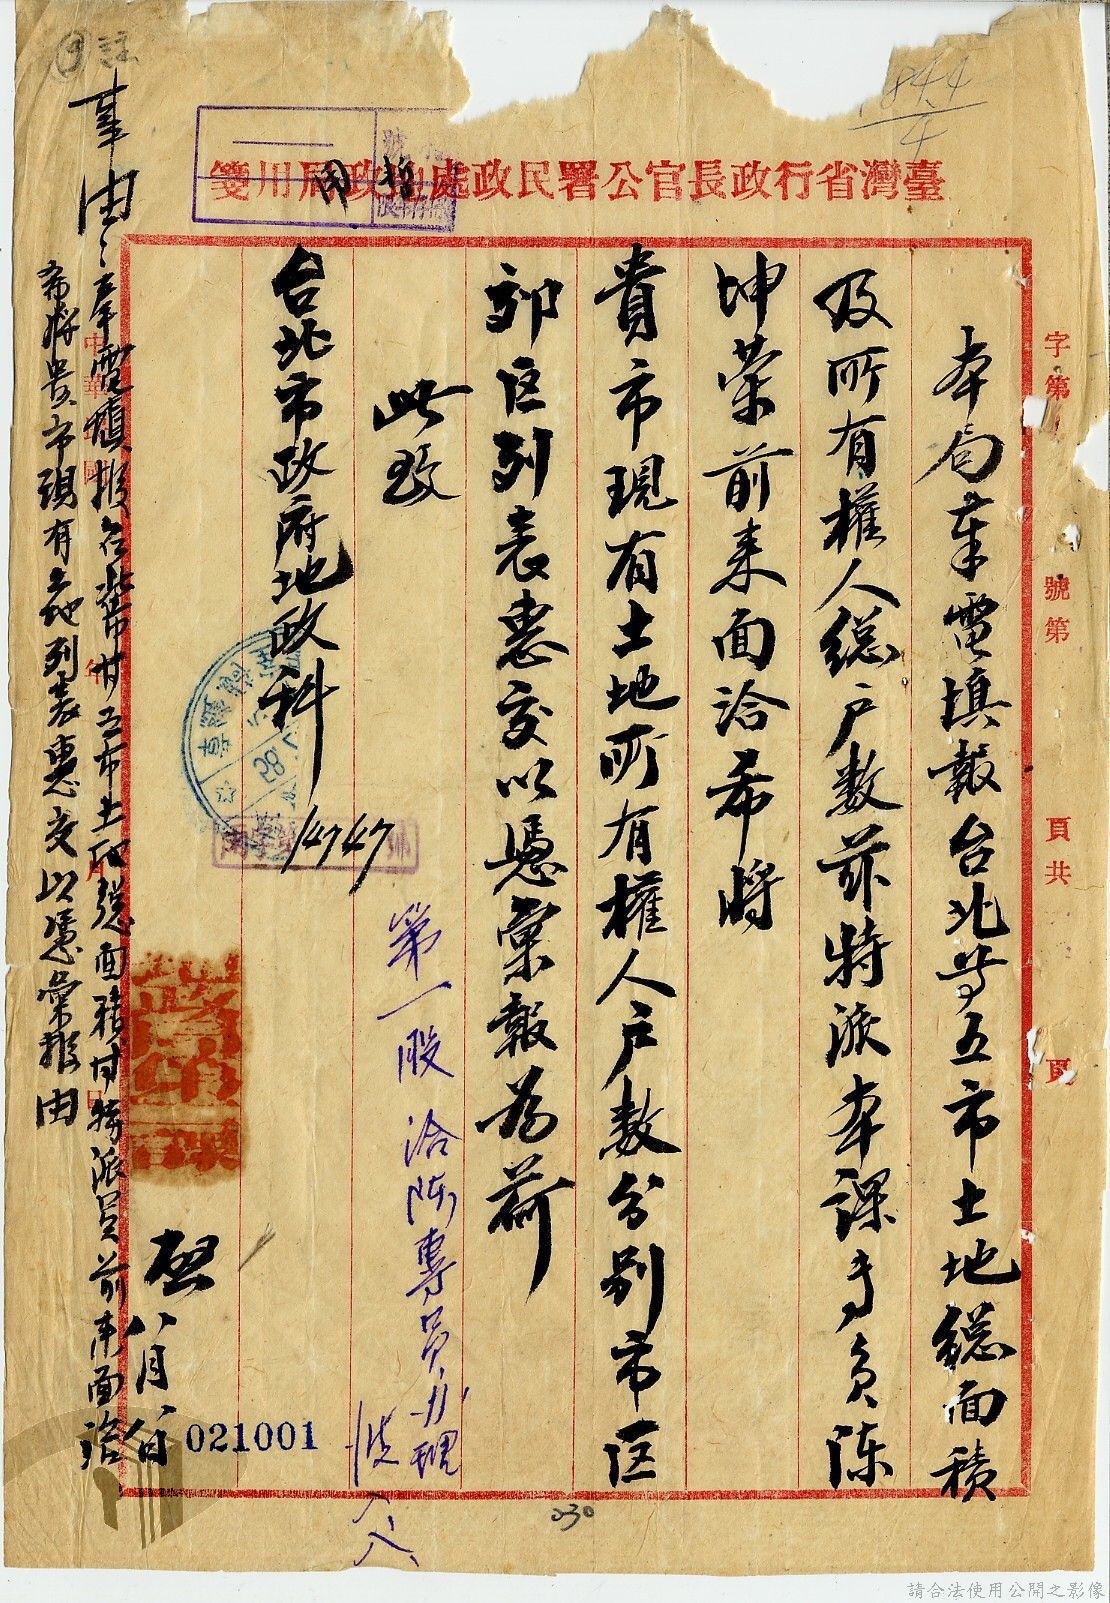 臺灣省行政長官公署民政處地政局用箋
字第 號第 頁共 頁
本局奉電填報台北等五市土地總面積
及所有權人總户数茲特派本課專員陳
坤榮前来面洽希將
貴市現有土地所有權人户数分别市区
郊区列表惠交以憑彙報為荷
此致
台北市政府地政科
第一股洽陳專員办理
啟 八月八日
021001
030
事由：奉電填報台北市廿五市土地總面積廿特派員前来面洽
希將貴市現有土地列表惠交以憑彙报由
844
4
請合法使用公開之影像